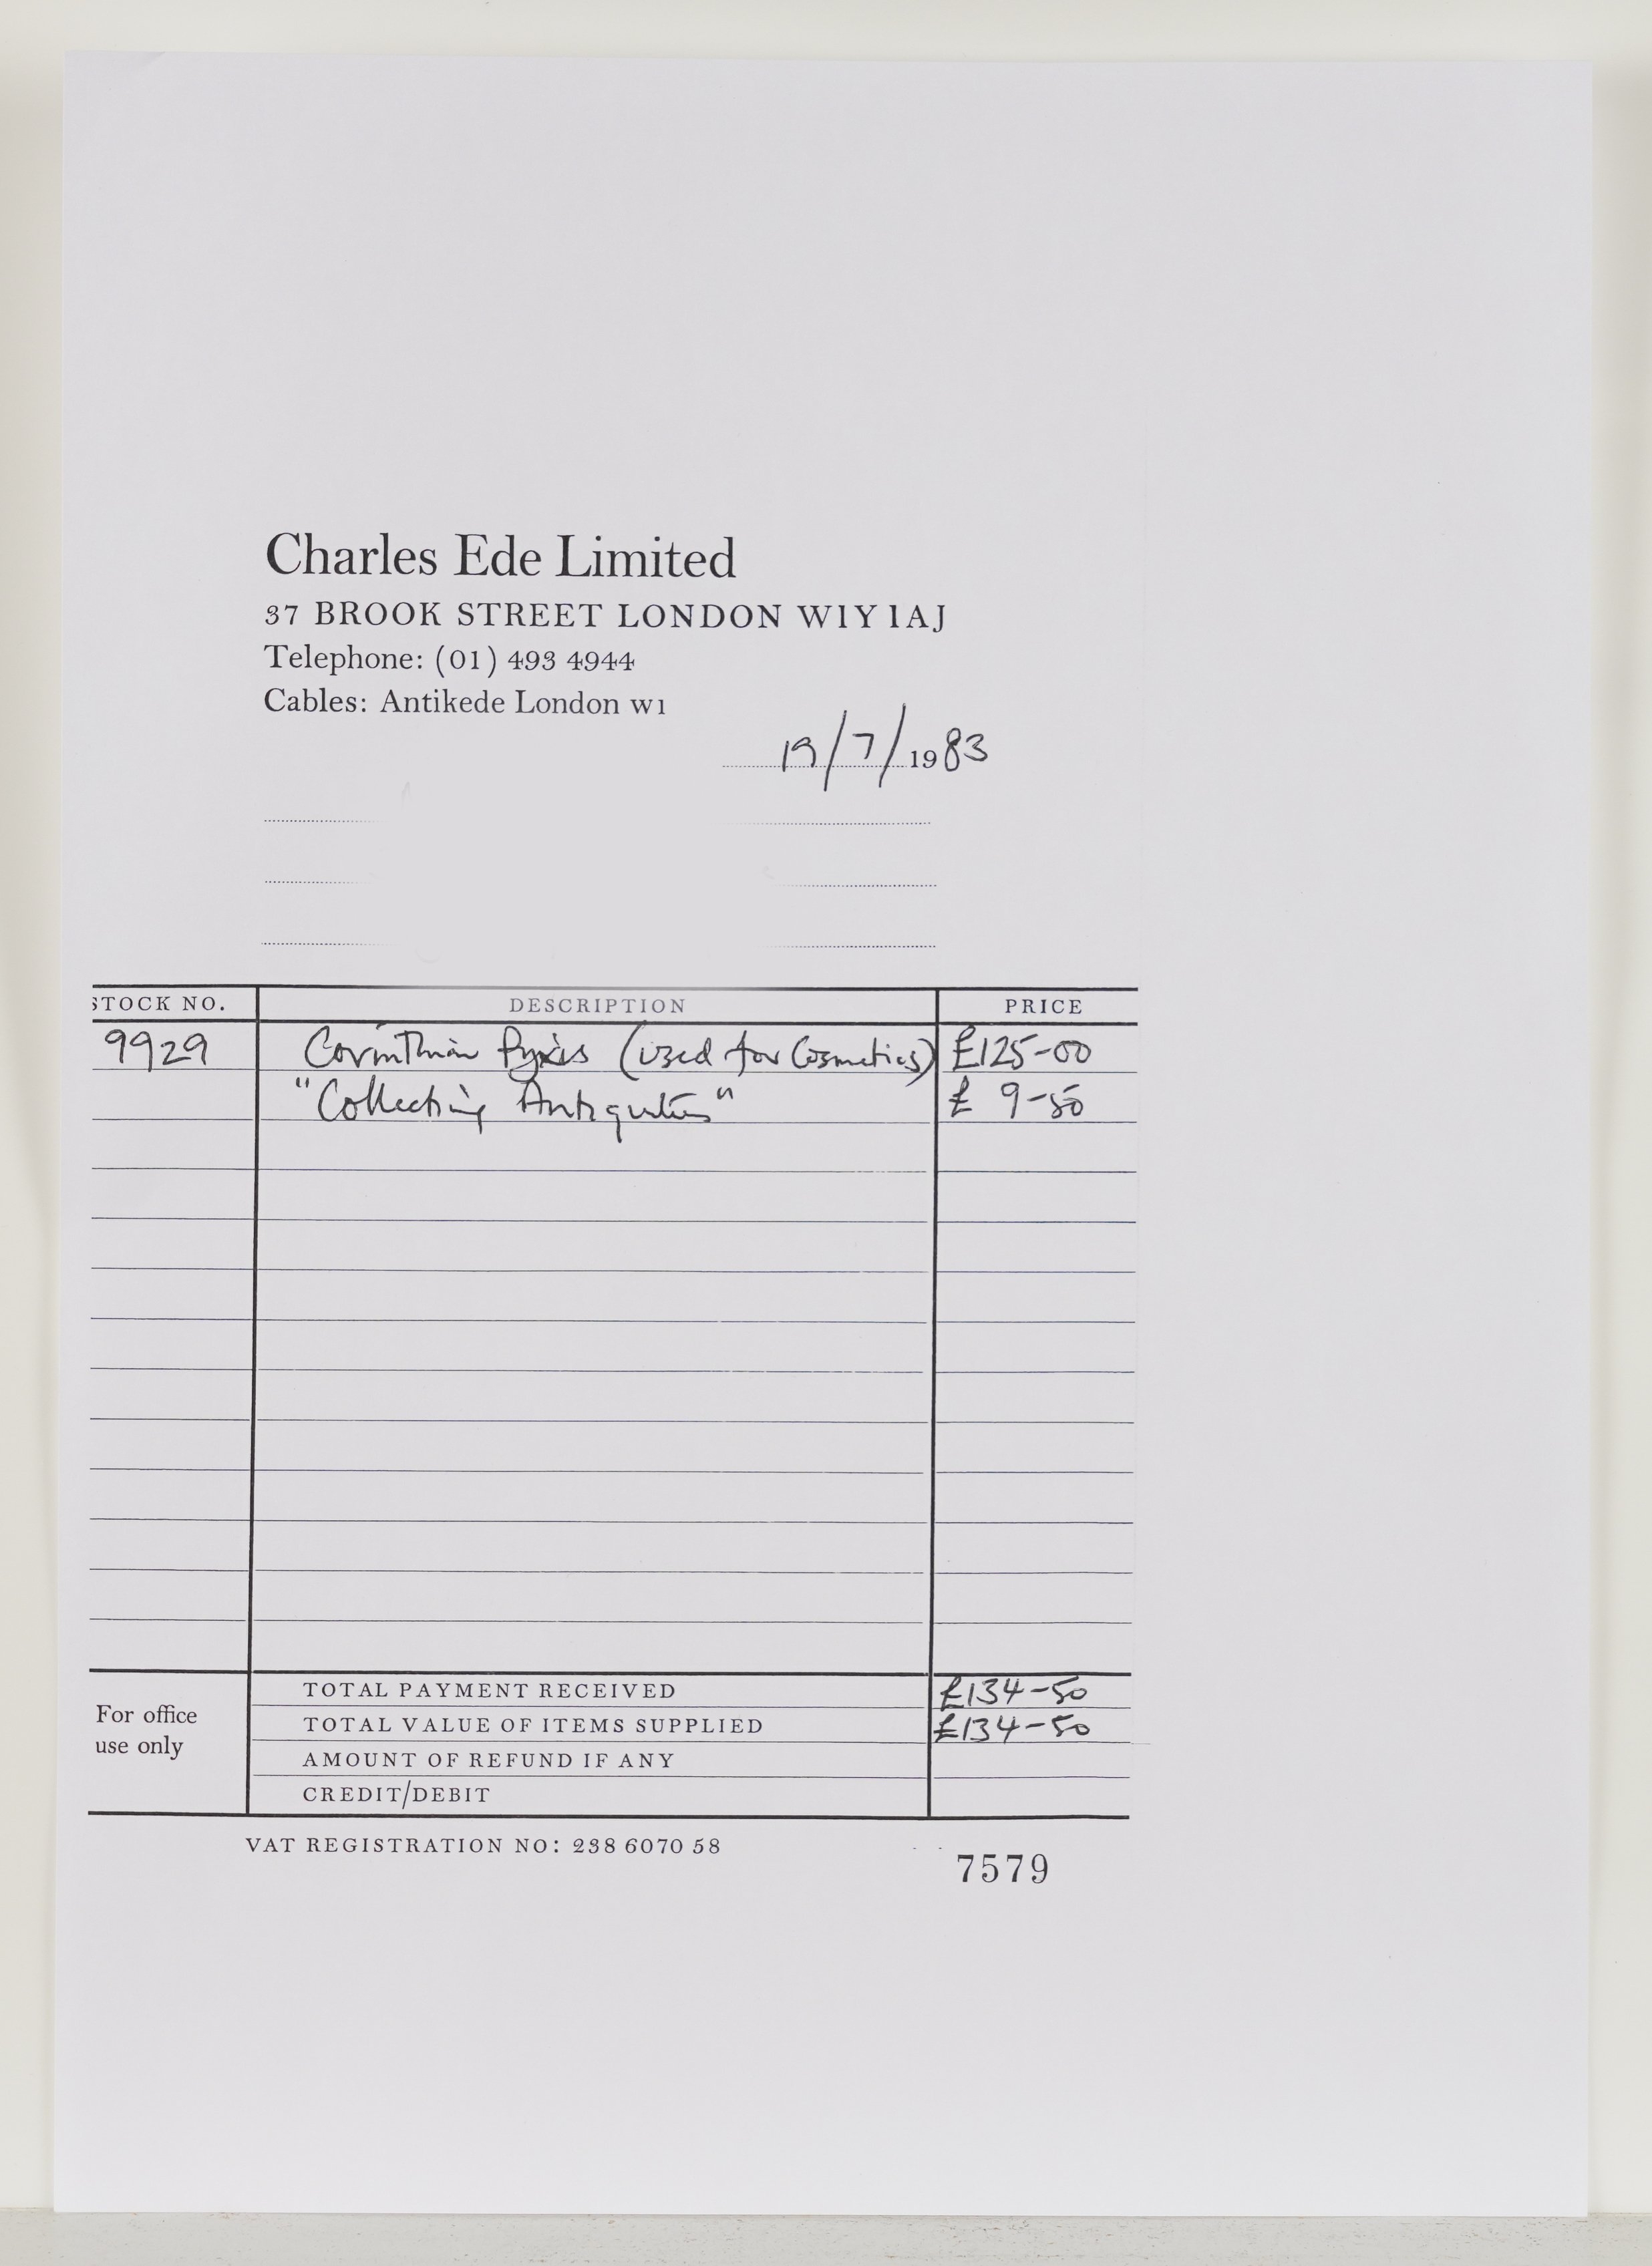 Charles Ede Limited
37 BROOK STREET LONDON W1Y 1AJ
Telephone: (01) 493 4944
Cables: Antikede London W1
19/7/1983
STOCK NO. DESCRIPTION PRICE
9929 Corinthian Pyxis (used for Cosmetics) £125-00
"Collecting Antiquities" £ 9-50
For office use only
TOTAL PAYMENT RECEIVED £134-50
TOTAL VALUE OF ITEMS SUPPLIED £134-50
AMOUNT OF REFUND IF ANY
CREDIT/DEBIT
VAT REGISTRATION NO: 238 6070 58
7579